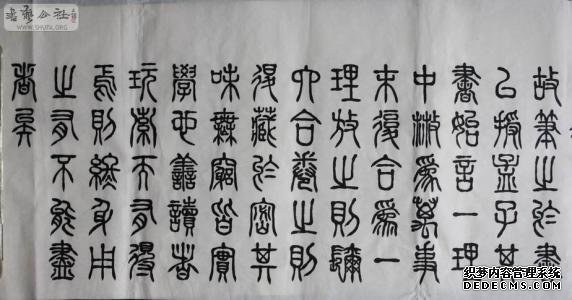 故筆之於書
以授孟子其
書始言一理
中散為萬事
末復合為一
理放之則彌
六合卷之則
退藏於密其
味無窮皆實
學也善讀者
玩索而有得
焉則終身用
之有不能盡
者矣
WWW.SHUFA.ORG
织梦内容管理系统
DEDECMS.COM